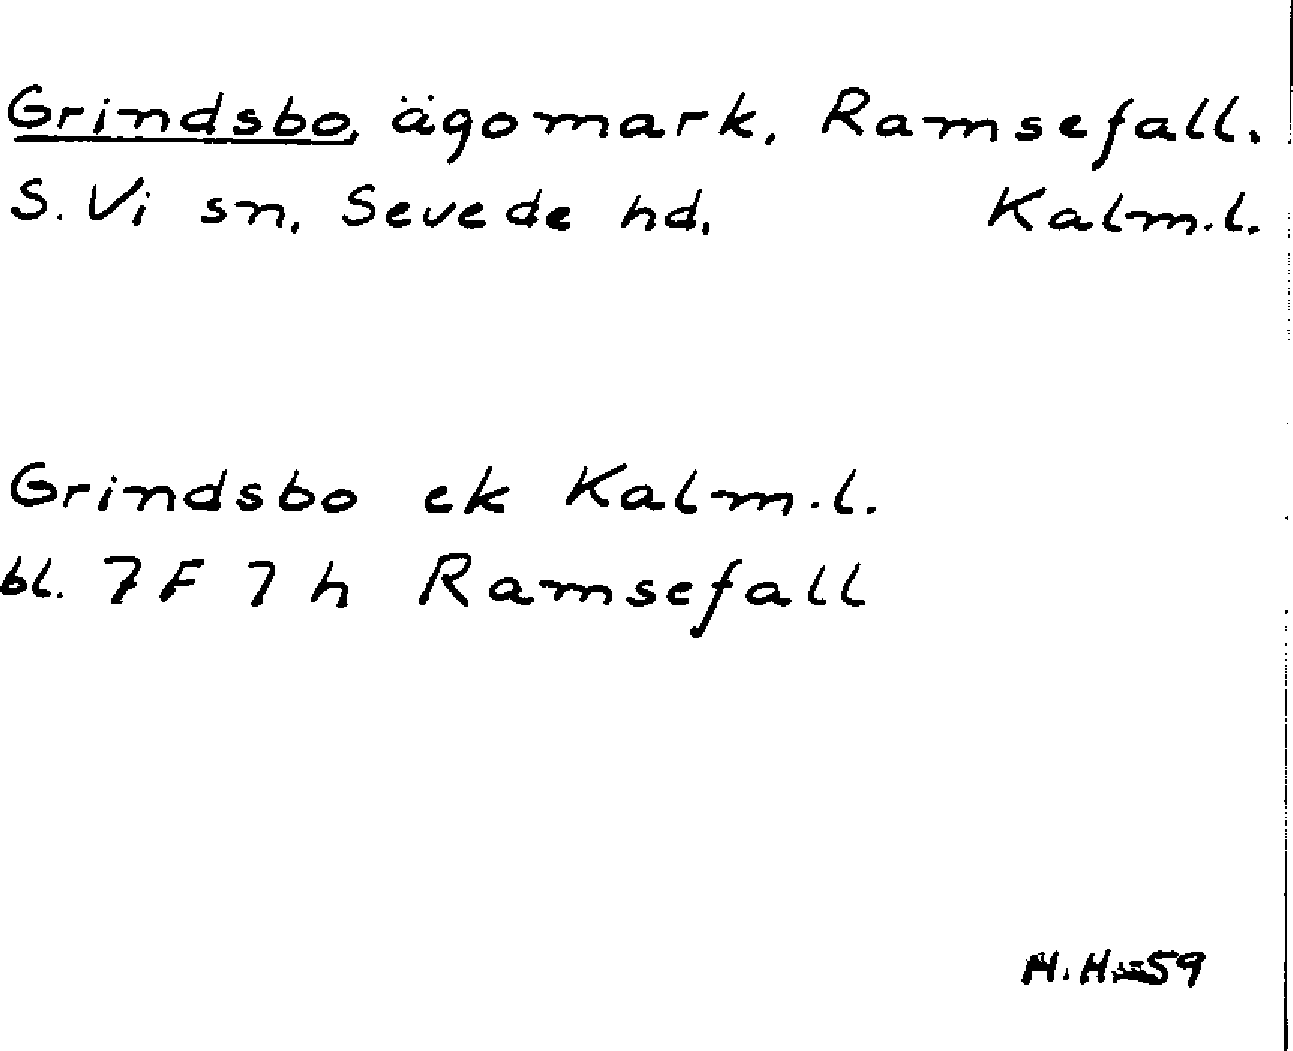 Grindsbo, ägomark, Ramsefall.
S. Vi sn, Sevede hd, Kalm.l.
Grindsbo ek Kalm.l.
bl. 7F 7h Ramsefall
59